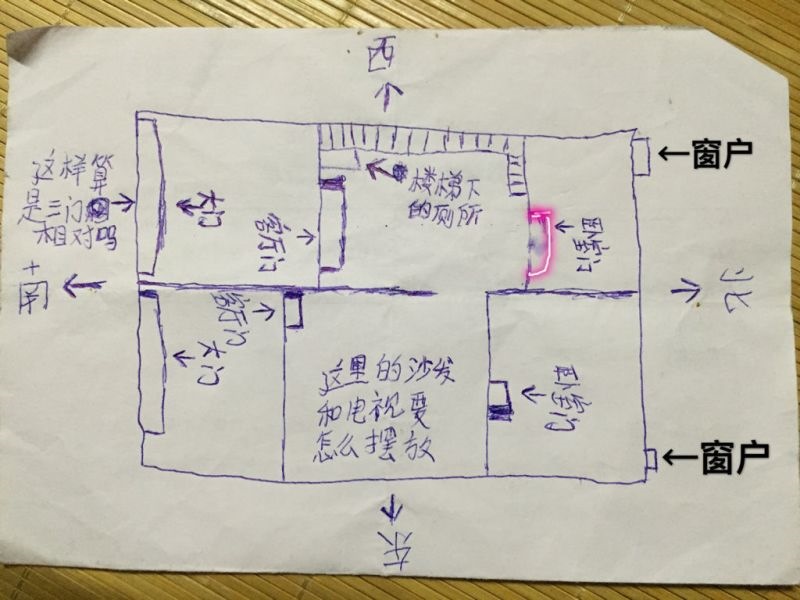 西
←窗户
这样算
是三门
相对吗
大门
客厅门
楼梯下
的厕所
卧室门
南
北
客厅门
大门
这里的沙发
和电视要
怎么摆放
卧室门
←窗户
东